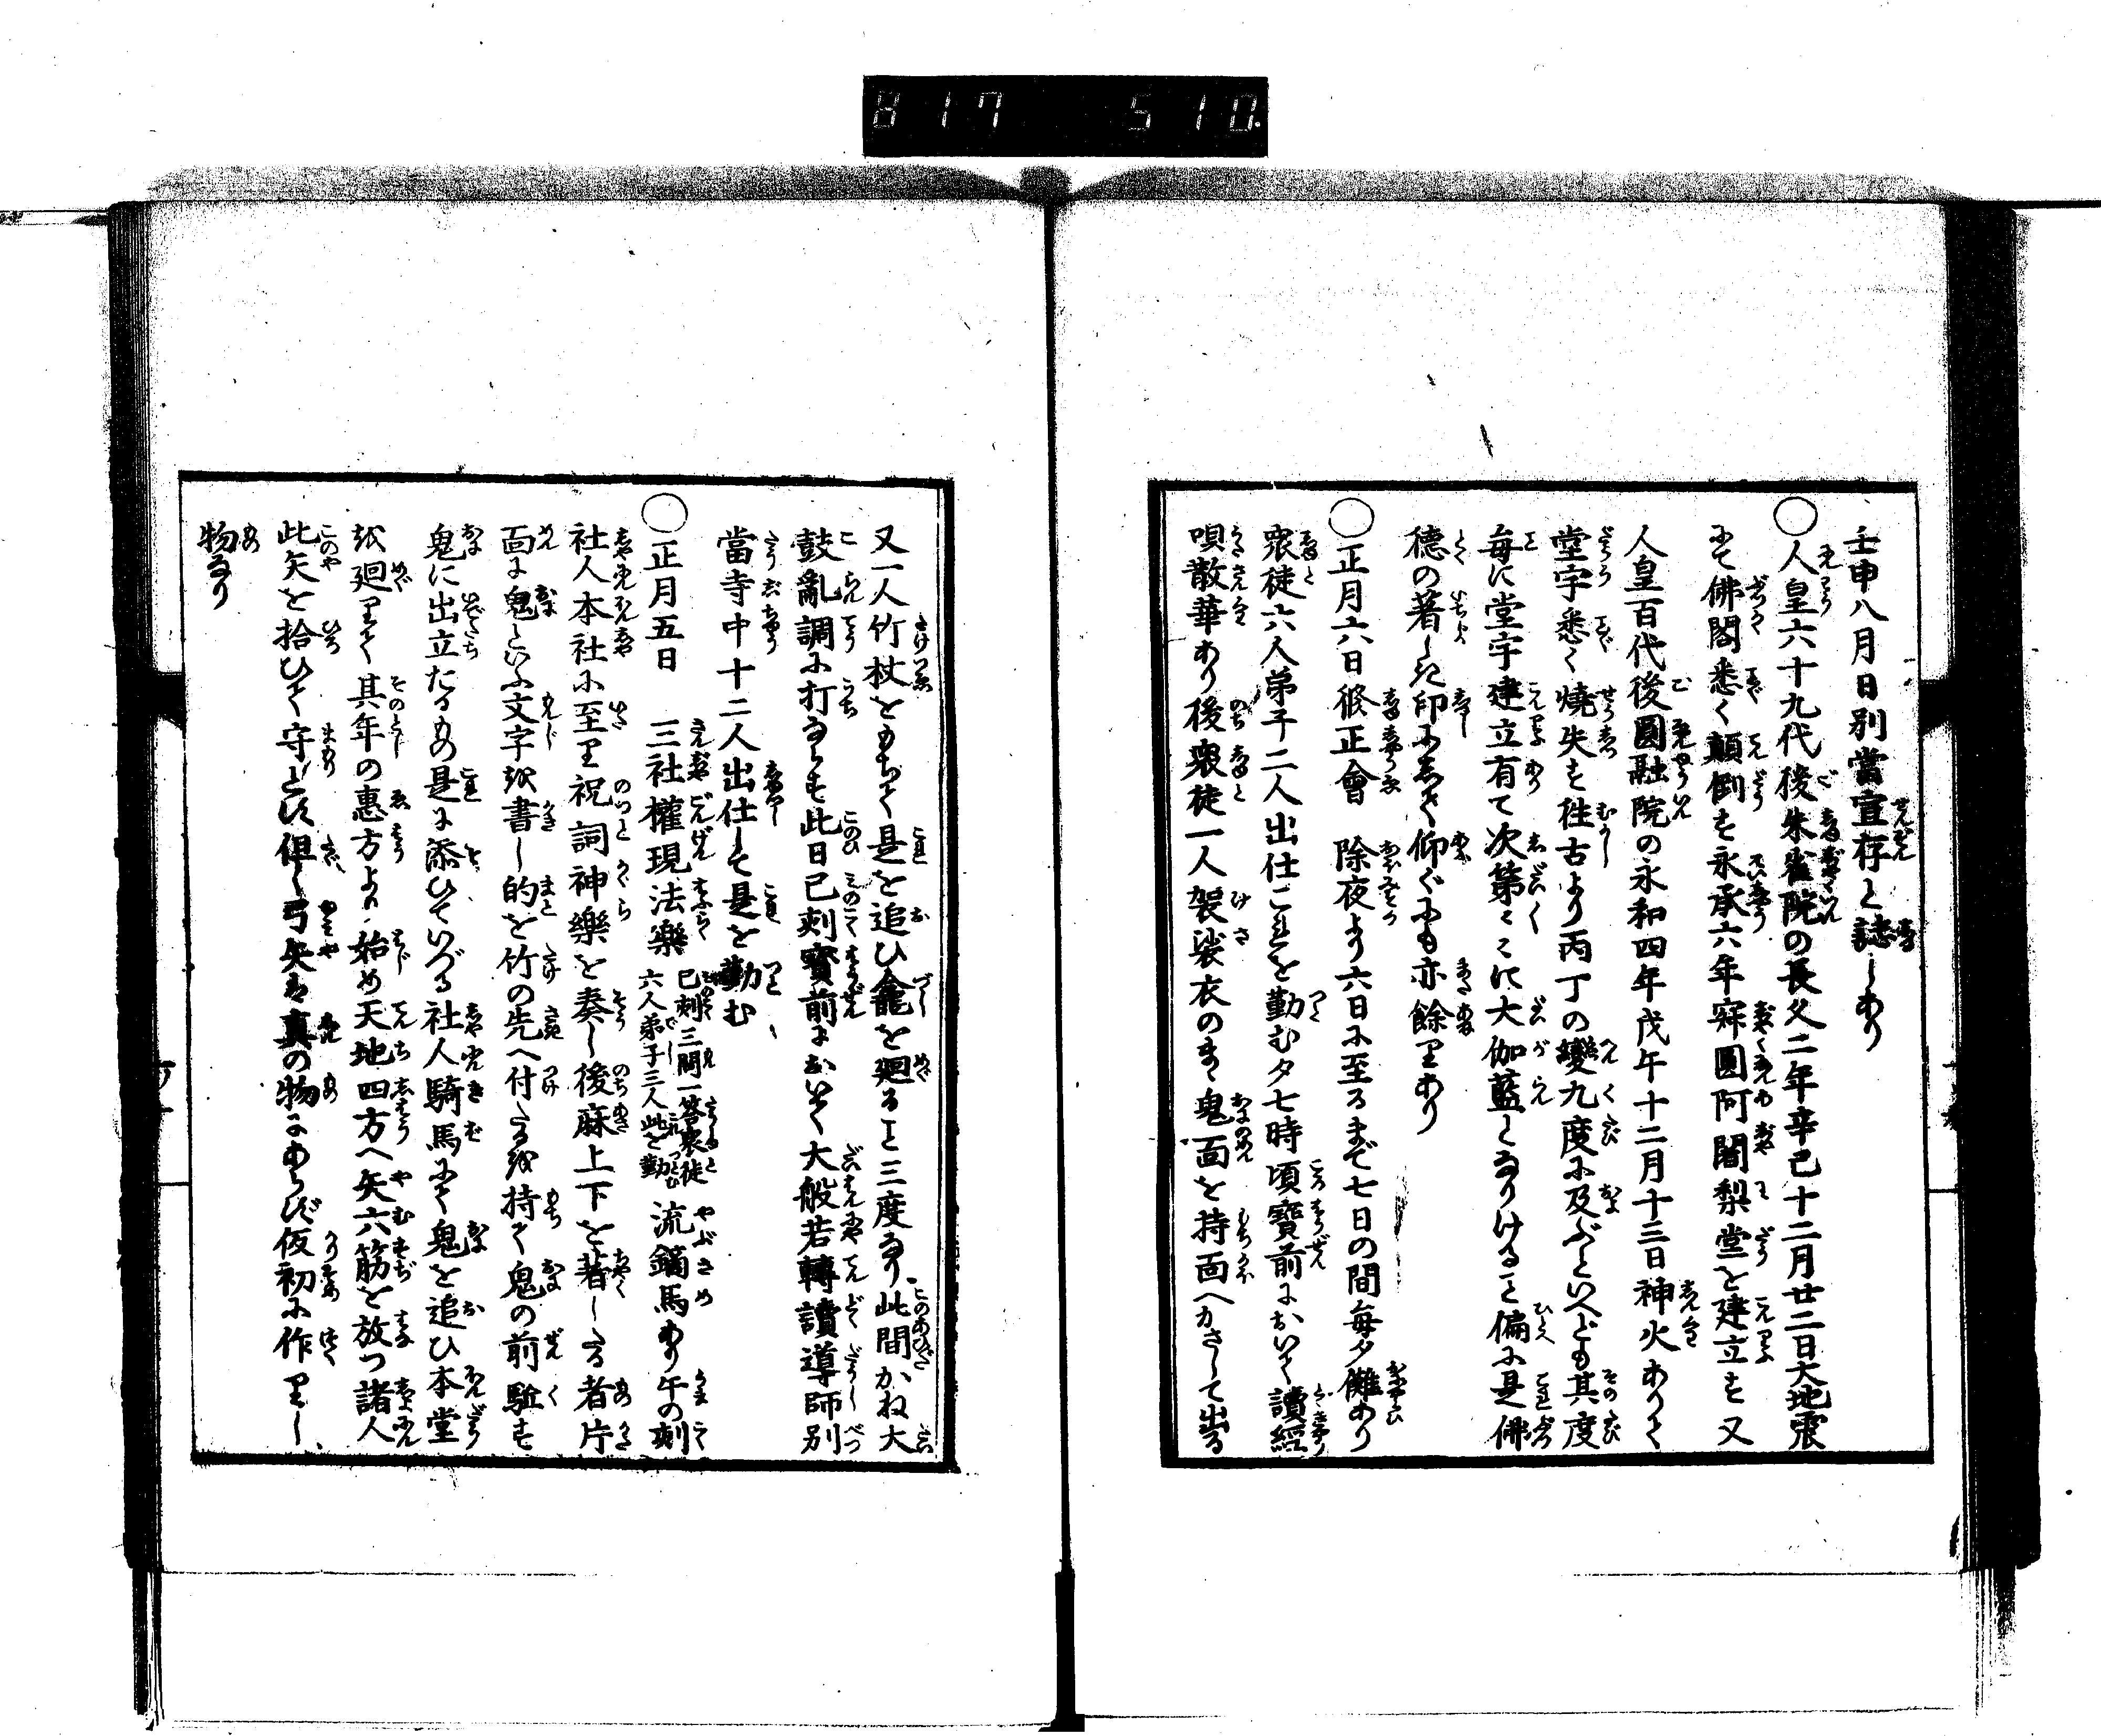 817 510.
壬申八月日別當宣存と誌しあり
○人皇六十九代後朱雀院の長久二年辛巳十二月廿二日大地震
にて佛閣悉く顛倒す永承六年寂圓阿闍梨堂を建立す又
人皇百代後圓融院の永和四年戊午十二月十三日神火ありて
堂宇悉く燒失す往古より丙丁の變九度に及ぶといへども其度
毎に堂宇建立有て次第々々に大伽藍となりけるこそ偏に是佛
德の著しき印にして仰ぐにも亦餘りあり
○正月六日修正會 除夜より六日に至るまで七日の間毎夕儺あり
衆徒六人弟子二人出仕これを勤む夕七時頃寶前において讀經
唄散華あり後衆徒一人袈裟衣のまゝ鬼面を持面へかざして出る
又一人竹杖をもちて是を追ひ龕を廻ること三度なり此間かね大
鼓亂調に打ならす此日巳刻寶前において大般若轉讀導師別
當寺中十二人出仕して是を勤む
○正月五日 三社權現法樂 巳刻三問一答衆徒六人弟子三人此を勤 流鏑馬あり午の刻
社人本社に至り祝詞神樂を奏し後麻上下を著したる者片
面に鬼といふ文字を書し的を竹の先へ付たるを持て鬼の前駈す
鬼に出立たるもの是に添ひていづる社人騎馬にて鬼を追ひ本堂
を廻りて其年の惠方より始め天地四方へ矢六筋を放つ諸人
此矢を拾ひて守とす但し弓矢は真の物にあらず仮初に作りし
物なり